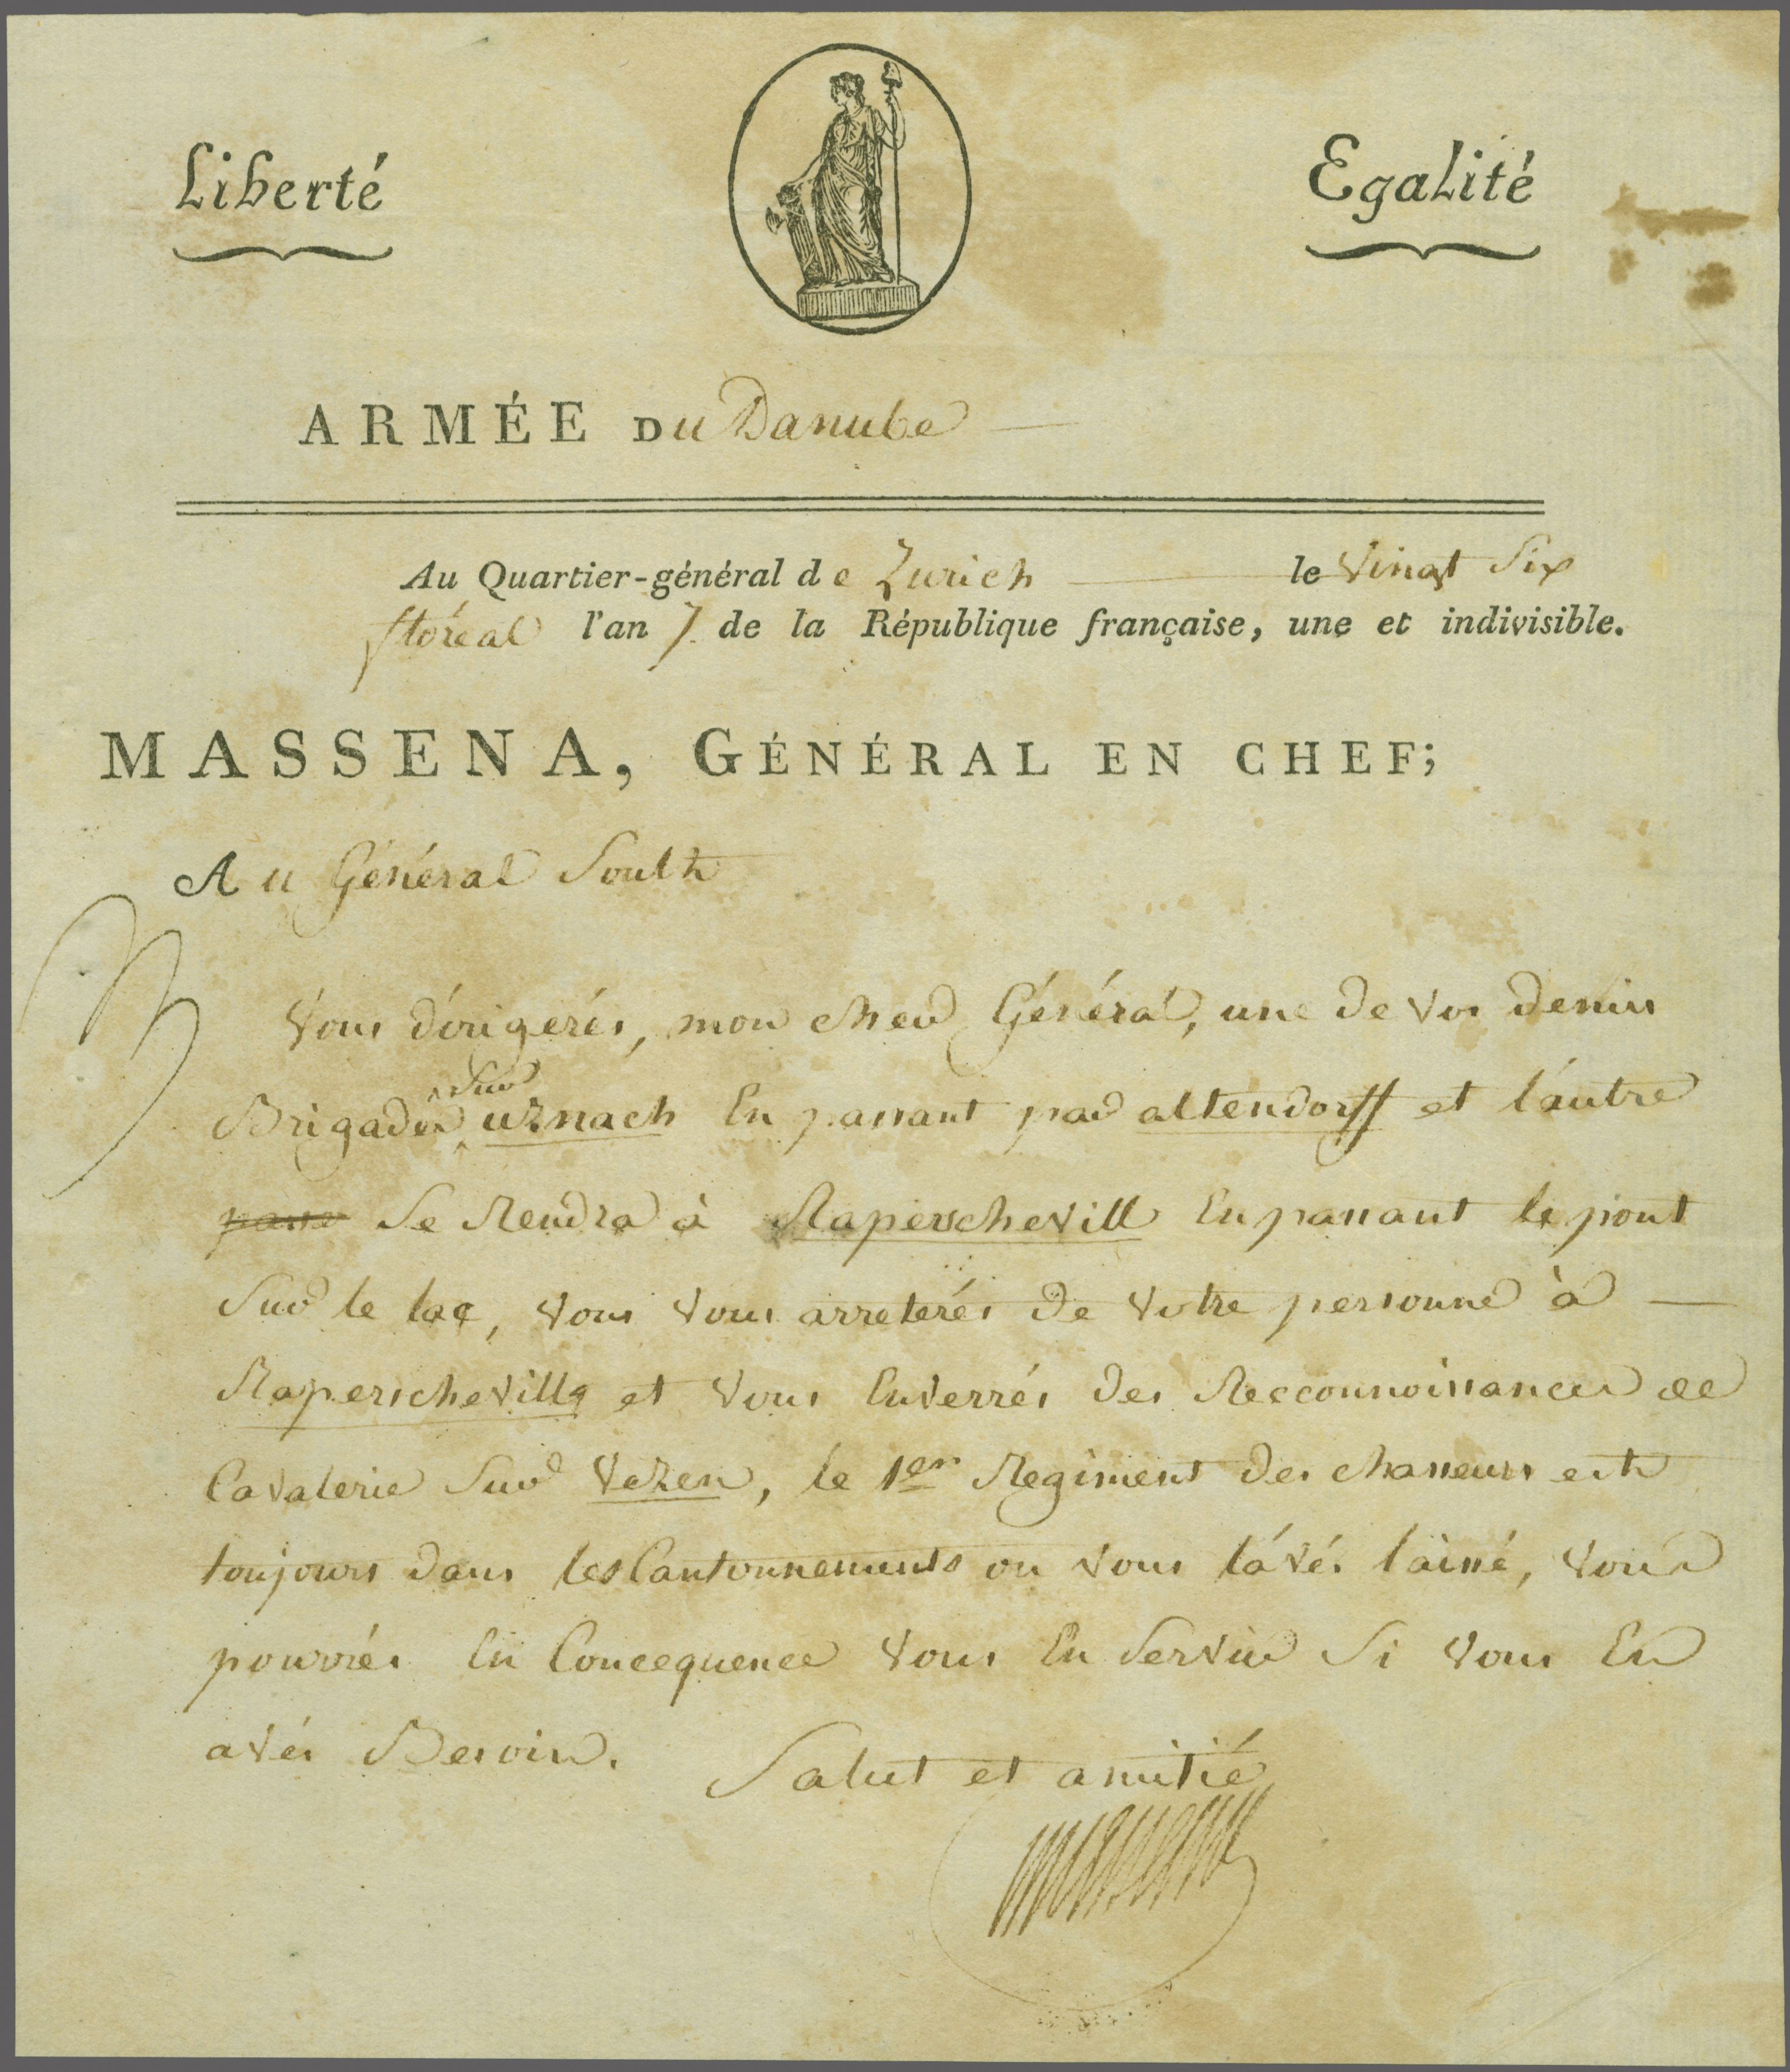 Liberté
Egalité
ARMÉE DU Danube
Au Quartier-général de Zurich le Vingt Six
floréal l'an 7. de la République française, une et indivisible.
MASSENA, GÉNÉRAL EN CHEF;
Au Général Soult
Vous dirigerés, mon cher Général, une de vos demies
Brigades sur uznach En passant par altendorff et l'autre
passe Se Rendra à Raperschevill En passant le pont
Sur le lac, Vous Vous arreterés de Votre personne à —
Raperscheville et Vous Enverrés des Reconnoissances de
Cavalerie Sur Vezen, le 1er Regiment des chasseurs est
toujours dans les Cantonnements ou Vous l'avés laissé, vous
pourrés En Concequence Vous En Servir Si Vous En
avés Besoin.
Salut et amitié
Massena